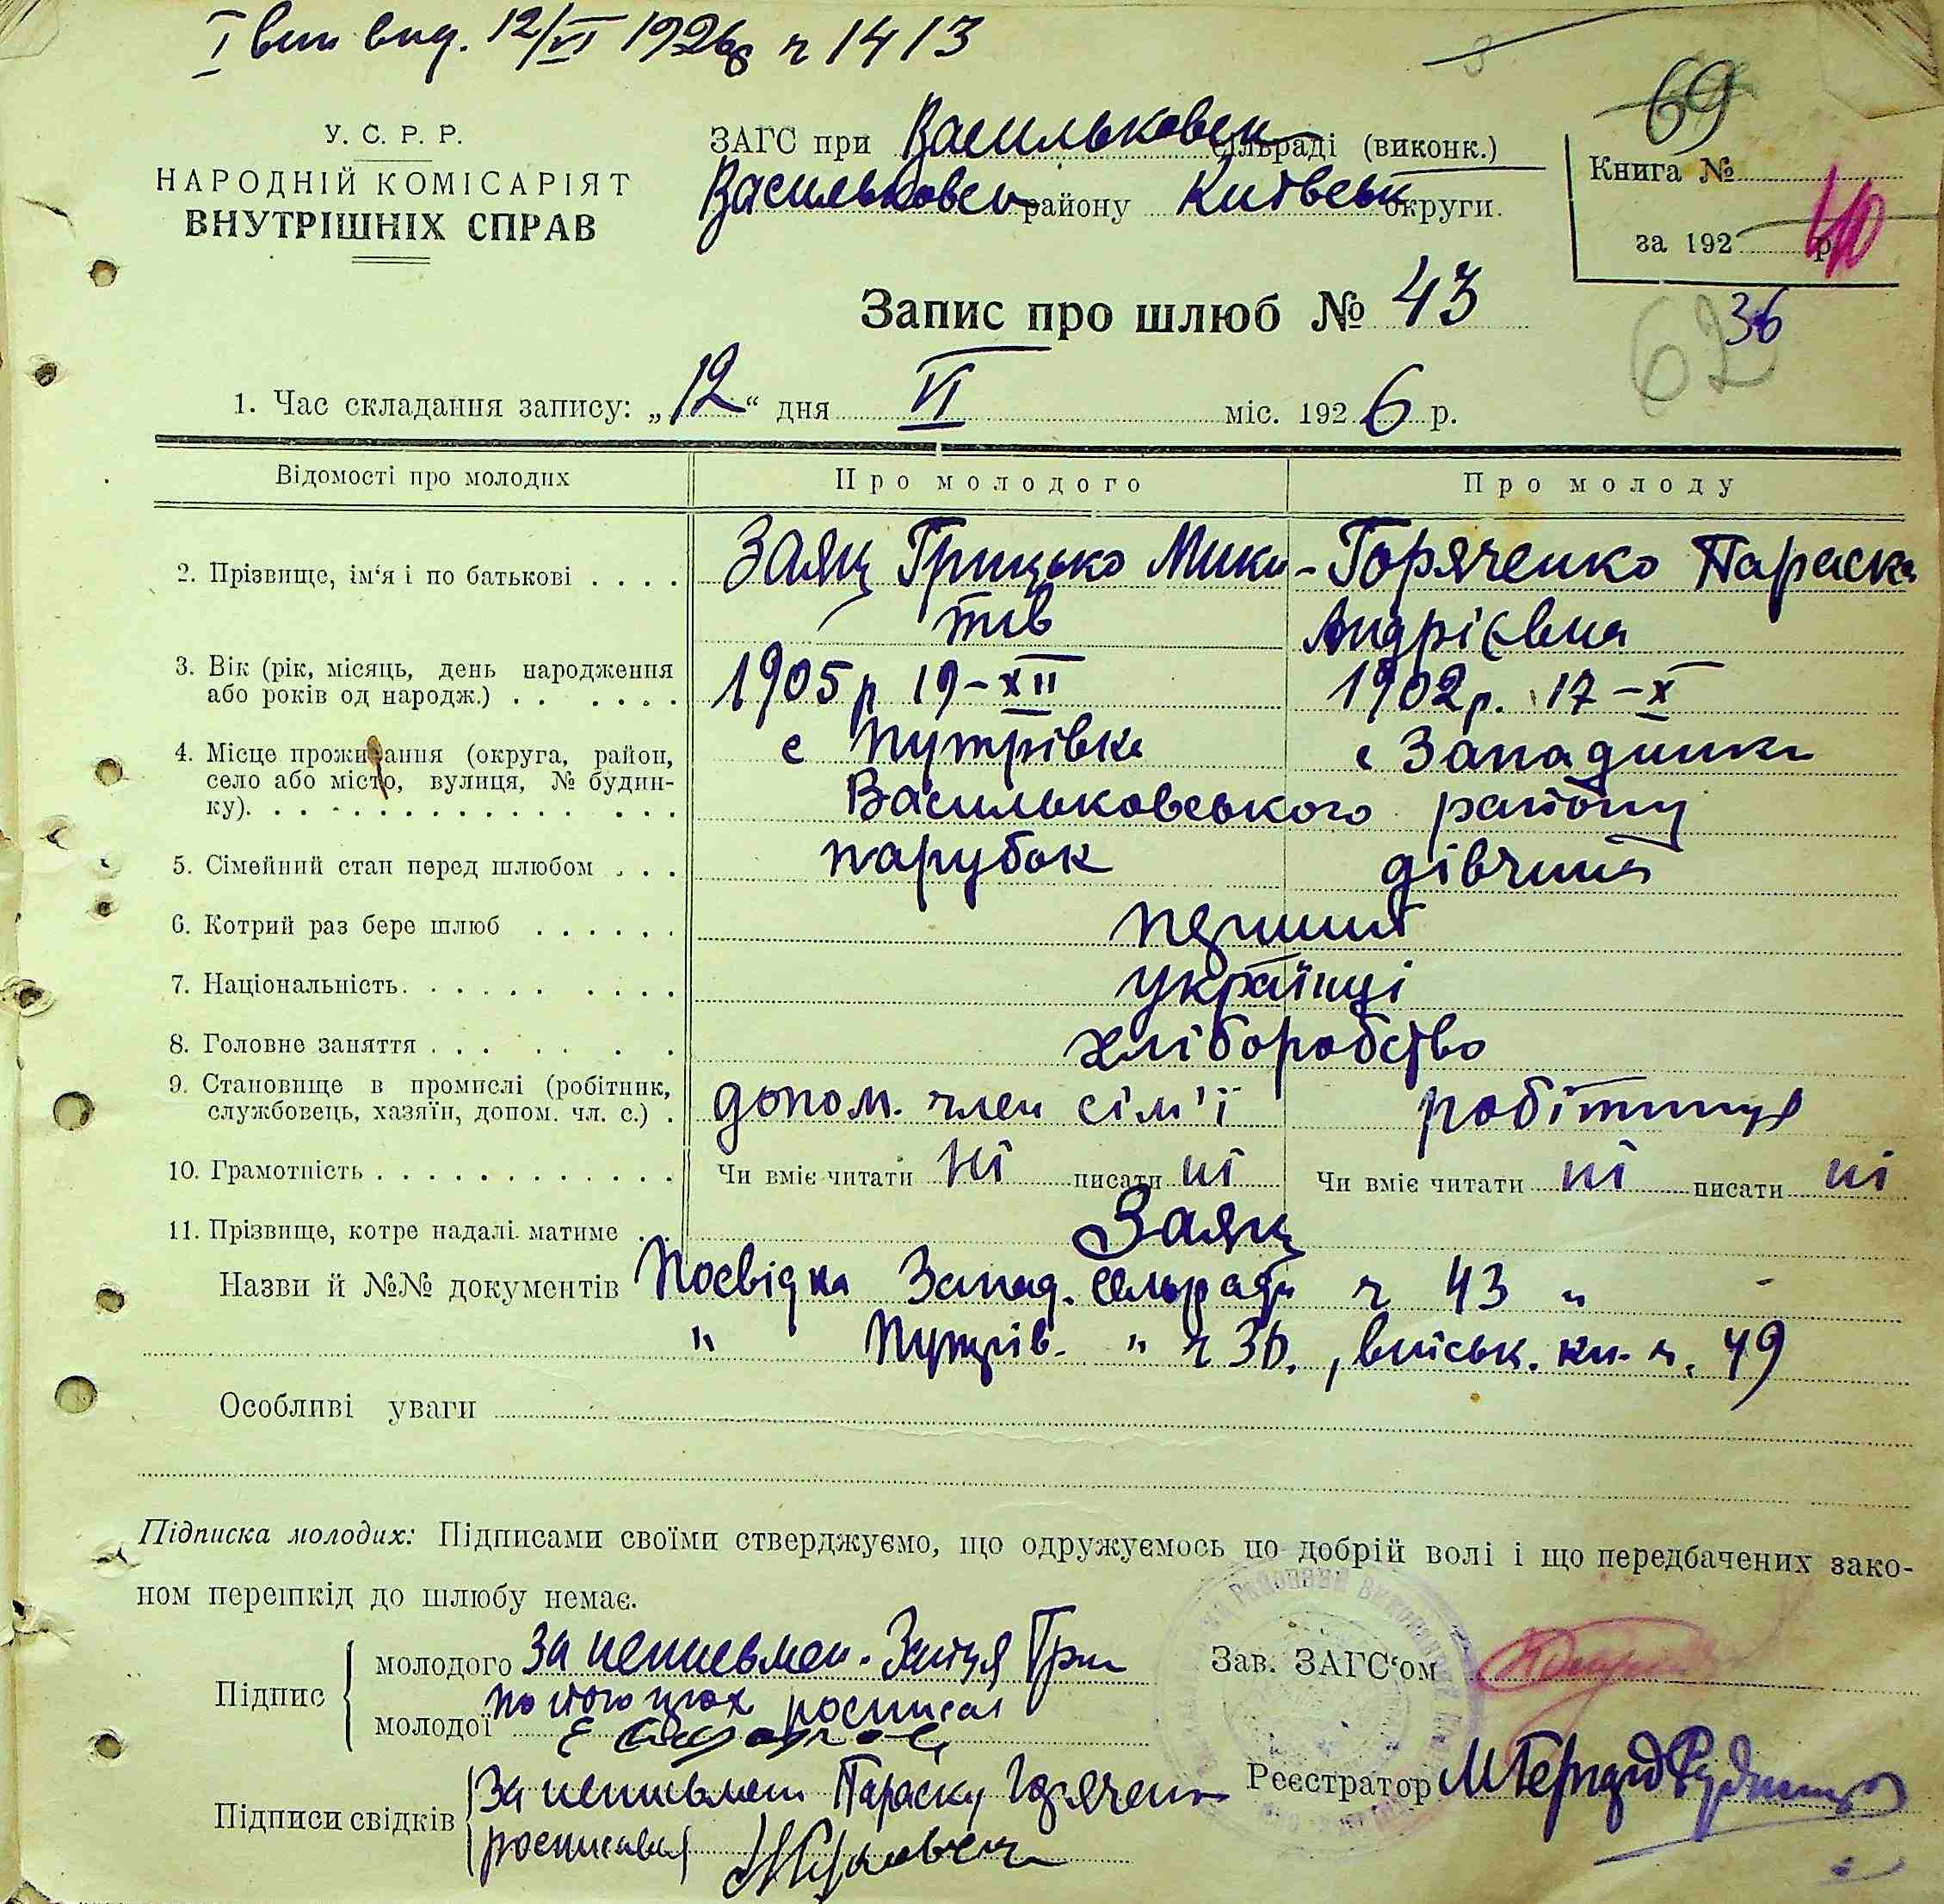 I вип вид. 12/VI 1926 ч 1413
69
У. С. Р. Р.
НАРОДНІЙ КОМІСАРІЯТ
ВНУТРІШНІХ СПРАВ
ЗАГС при Васильковськ сільраді (виконк.)
Васильковськ району Київськ округи.
Книга №
за 192 р.
40
Запис про шлюб № 43
36
62
1. Час складання запису: „12“ дня VI міс. 1926 р.
Відомості про молодих Про молодого Про молоду
2. Прізвище, ім'я і по батькові . . . . Заяц Грицько Мики- Горяченко Параска
тів Андріївна
3. Вік (рік, місяць, день народження
або років од народж.) . . . . . . 1905 р 19-XII 1902 р. 17-X
4. Місце проживання (округа, район, с Путрівка с Западинка
село або місто, вулиця, № будин-
ку). Васильковського району
5. Сімейний стан перед шлюбом . . . парубок дівчина
6. Котрий раз бере шлюб . . . . . . перший
7. Національність. українці
8. Головне заняття хліборобство
9. Становище в промислі (робітник,
службовець, хазяїн, допом. чл. с.) . допом. член сім'ї робітниця
10. Грамотність Чи вміє читати ні писати ні Чи вміє читати ні писати ні
11. Прізвище, котре надалі матиме . . Заяц
Назви й №№ документів Посвідка Запад. сільради ч 43 „ -
" Путрів. " ч 36, військ. кн. ч. 49
Особливі уваги
Підписка молодих: Підписами своїми стверджуємо, що одружуємось по добрій волі і що передбачених зако-
ном перешкід до шлюбу немає.
Підпис
молодого За неписьмен. Зайця Гри
по його прох росписал
молодої
Зав. ЗАГС'ом
Реєстратор
Підписи свідків За неписьмен Параску Горячен
росписався